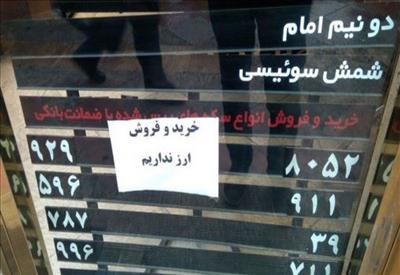 دو نیم امام
شمش سوئیسی
خرید و فروش انواع سکه های پرس شده با ضمانت بانکی
خرید و فروش
ارز نداریم
۹۲۹
۸۰۵۲
۵۹۶
۹۱۱
۷۸۷
۳۹
۹۹۶
۷۱۱